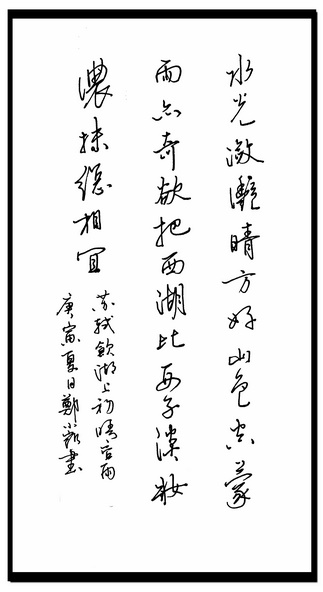 水光潋灧晴方好山色空蒙
雨亦奇欲把西湖比西子淡妆
濃抹總相宜
苏轼飲湖上初晴后雨
庚寅夏日鄭書